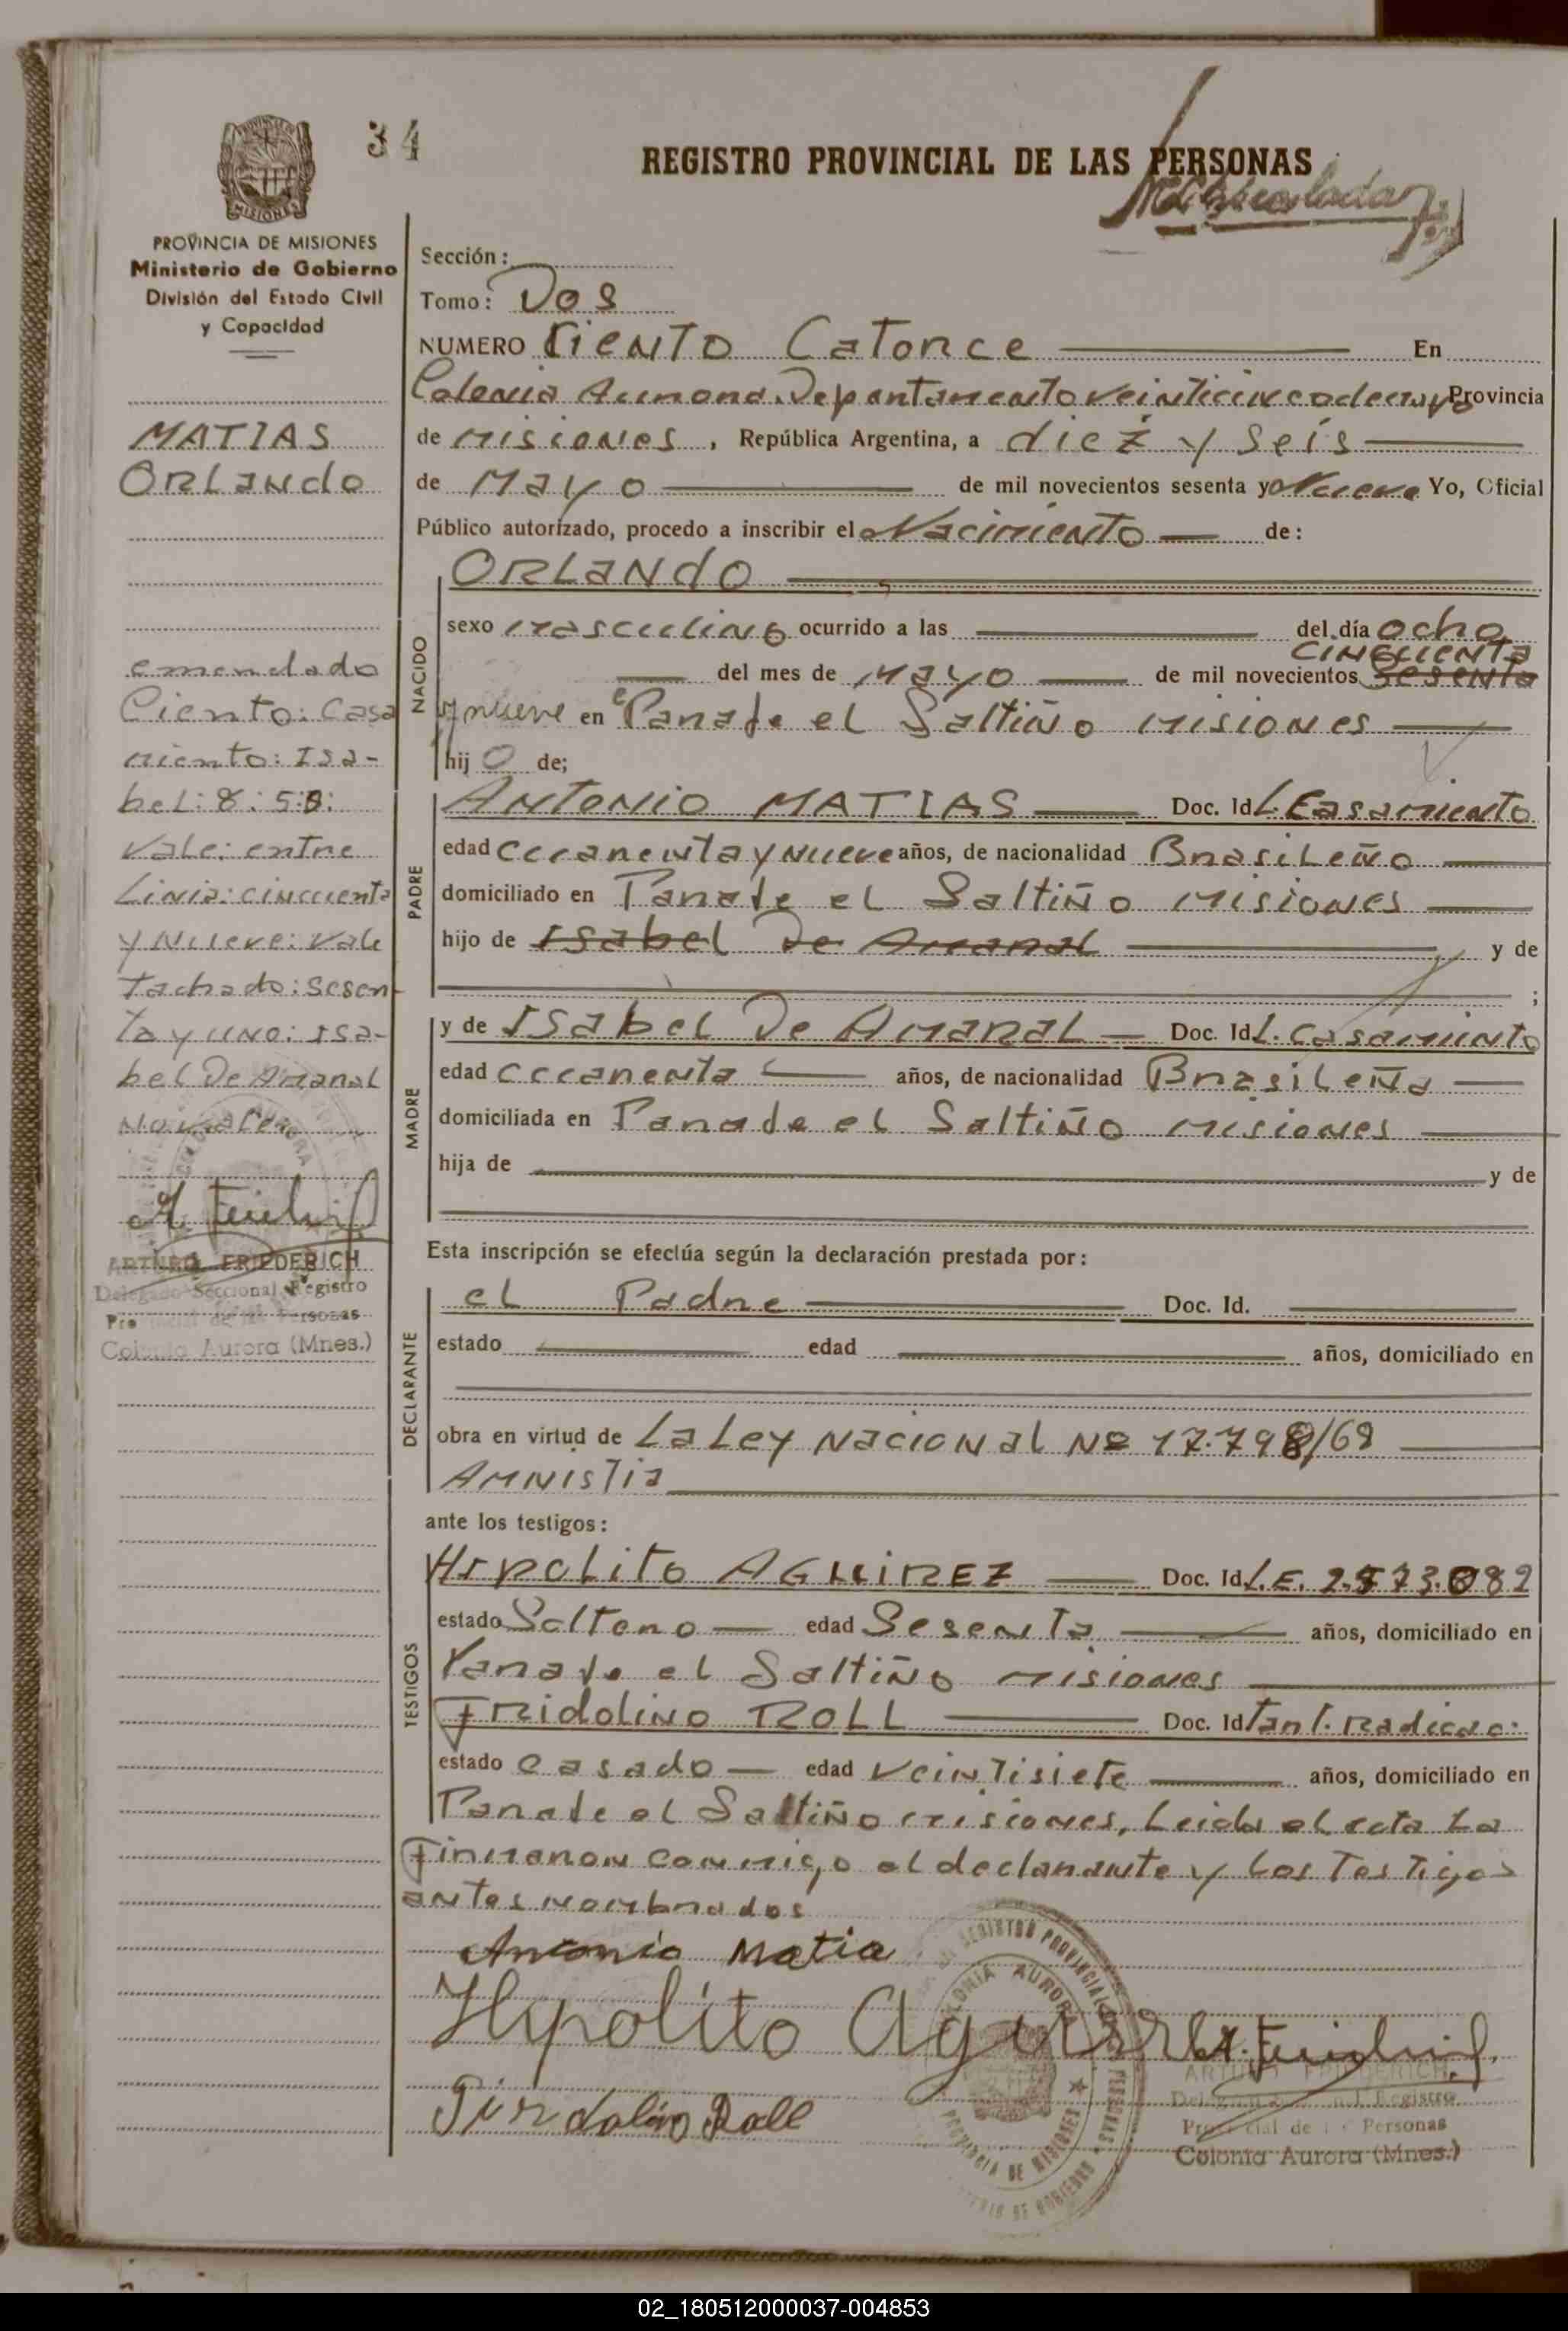 34
REGISTRO PROVINCIAL DE LAS PERSONAS
PROVINCIA DE MISIONES
Ministerio de Gobierno
División del Estado Civil
y Capacidad
MATIAS
ORLANDO
emendado
Ciento: Casa
miento: Isa-
bel: 8: 58:
Vale: entre
Linia: cincuenta
y Nueve: Vale
Tachado: Sesen-
ta y uno: Isa-
bel De Amaral
No vale
ARTURO FRIEDERICH
Delegado Seccional Registro
Provincial de las Personas
Colonia Aurora (Mnes.)
Sección:
Tomo: Dos
NUMERO Ciento Catorce En
Colonia Aurora. Departamento veinticinco de mayo Provincia
de Misiones, República Argentina, a diez y Seis
de Mayo de mil novecientos sesenta y Nueve Yo, Oficial
Público autorizado, procedo a inscribir el Nacimiento de:
NACIDO
ORLANDO
sexo masculino ocurrido a las del día ocho
CINCUENTA
del mes de Mayo de mil novecientos Sesenta
y nueve en Parade el Saltiño Misiones
hijo de;
PADRE
ANTONIO MATIAS Doc. Id L. Casamiento
edad Cuarenta y Nueve años, de nacionalidad Brasileño
domiciliado en Parade el Saltiño Misiones
hijo de Isabel De Amaral y de
;
MADRE
y de Isabel De Amaral Doc. Id L. Casamiento
edad Cuarenta años, de nacionalidad Brasileña
domiciliada en Parade el Saltiño Misiones
hija de y de
Esta inscripción se efectúa según la declaración prestada por:
DECLARANTE
el Padre Doc. Id.
estado edad años, domiciliado en
obra en virtud de La Ley Nacional Nº 17.798/68
AMNISTIA
ante los testigos:
TESTIGOS
HIPOLITO AGUIREZ Doc. Id L.E. 2.573.082
estado Solteno edad Sesenta años, domiciliado en
Parade el Saltiño Misiones
FRIDOLINO ROLL Doc. Id Tarj. Radicac.
estado Casado edad Veintisiete años, domiciliado en
Parade el Saltiño Misiones, Leida el acta La
Firmaron conmigo el declarante y los Testigos
antes nombrados
Antonio Matia
Hipolito
Roll
REGISTRO PROVINCIAL DE LAS PERSONAS
COLONIA AURORA
PROVINCIA DE MISIONES
ARTURO FRIEDERICH
Delegado Seccional Registro
Provincial de las Personas
Colonia Aurora (Mnes.)
02_180512000037-004853